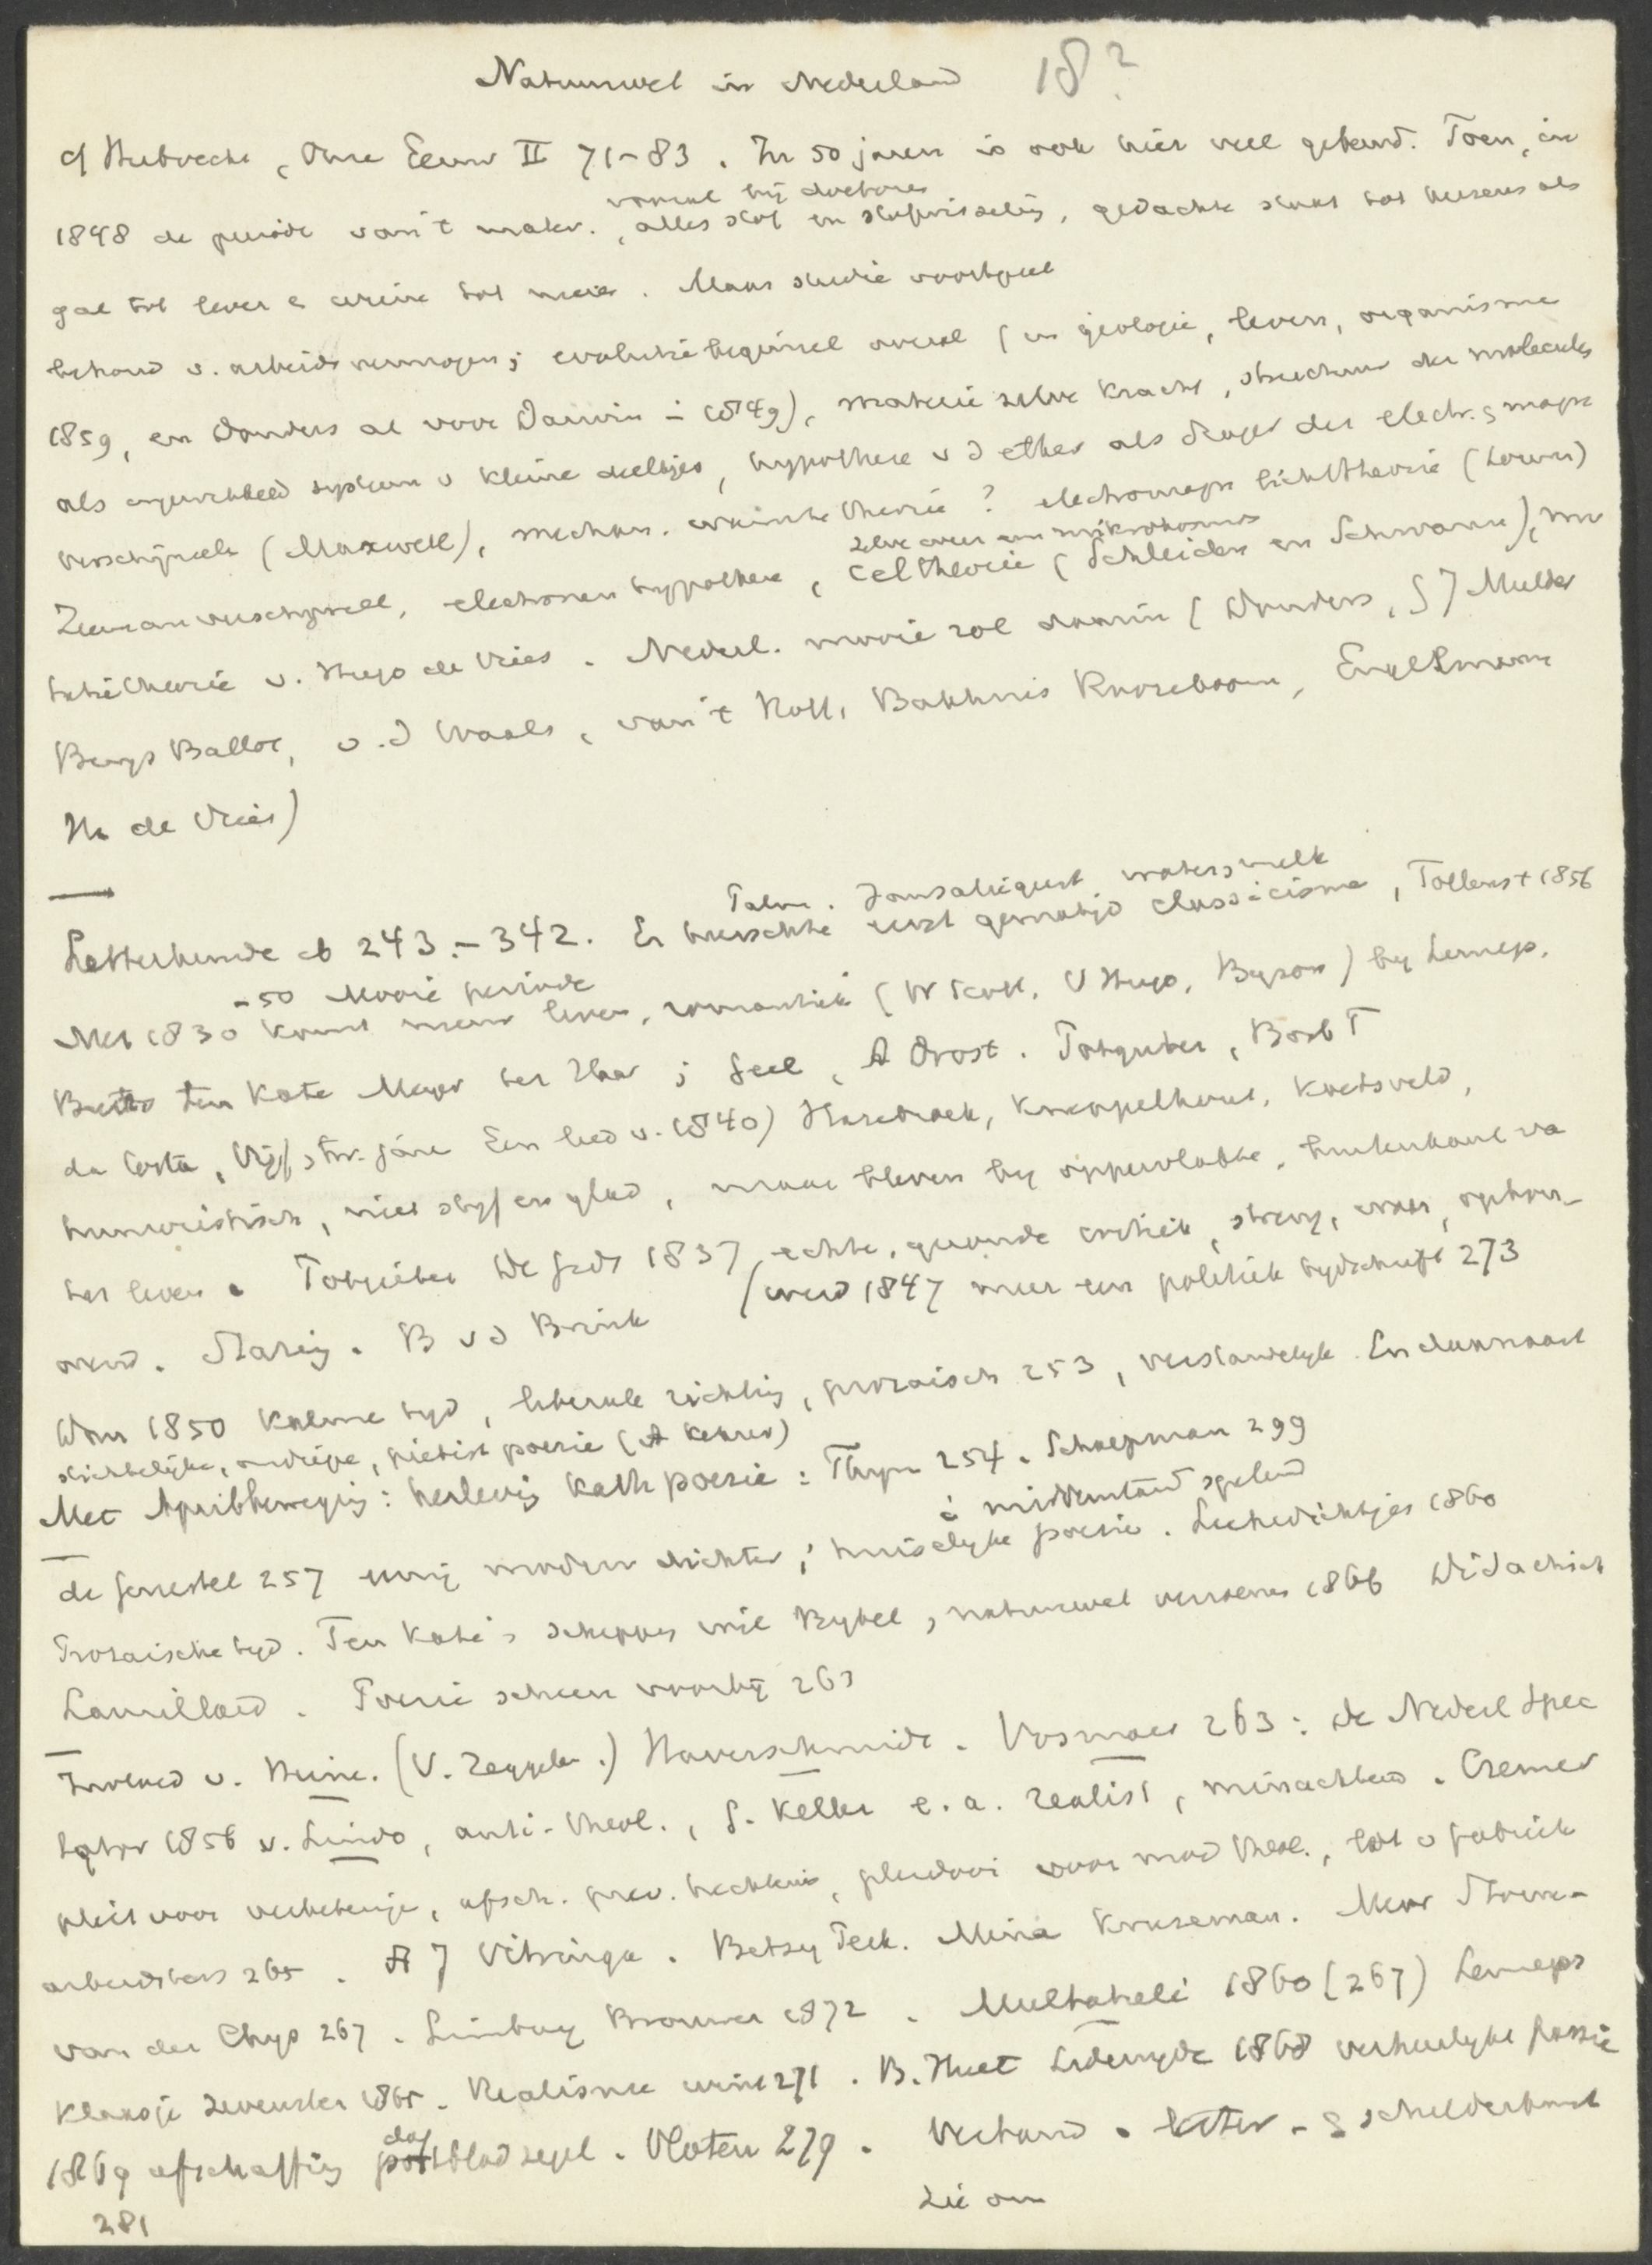 Natuurwet in Nederland 18?
cf Hubrecht, Onze Eeuw II 71-83. In 50 jaren is ook hier veel gebeurd. Toen, in
vooral bij doctores
1848 de periode van 't mater., alles stof en stofwisseling, gedachte staat tot hersens als
gal tot lever & urine tot nier. Maar studie
behoud v. arbeidsvermogen; evolutiebeginsel overal (in geologie, leven, organisme
1859, en Donders al voor Darwin in 1849), materie zelve kracht, structuur der moleculen
als ingewikkeld systeem v kleine deeltjes, hypothese v d ether als drager der electr. & magn
verschijnsels (Maxwell), mechan. warmte theorie? electromagn lichttheorie (Lorentz)
zelve weer een mikrokosmos
Zeeman verschijnsel, electronen hypothese, celtheorie (Schleiden en Schwann), mu
tatietheorie v. Hugo de Vries. Nederl. mooie rol daarin (Donders, G J Mulder
Buys Ballot, v.d Waals, van 't Hoff, Bakhuis Roozeboom, Engelmann
H. de Vries)
Letterkunde ib 243-342. Er heerschte eerst gematigd classicisme, Tollens † 1856
-50 Mooie periode
Met 1830 komt nieuw leven, romantiek (W Scott, V Hugo, Byron) by Lennep,
Beets ten Kate Meyer ter Haar; Geel, A Drost. Potgieter, Bosb T
da Costa, Vijf en tw. jare Een lied v. 1840) Hasebroek, Kneppelhout, Koetsveld,
humoristisch, niet styf en glad, maar bleven by oppervlakte, buitenkant va
het leven. Potgieter De Gids 1837, echte, gezonde critiek, streng, waar, opbou-
wend. Staring. B v d Brink (werd 1847 meer een politiek tydschrift 273
Dan 1850 kalme tyd, liberale richting, prozaisch 253, verstandelyk. En daarnaast
stichtelijke, ondiepe, pietist poezie (A
Met Aprilbeweging: herleving Kath poezie: Thym 254. Schaepman 299
i middenstand spelend
de Genestet 257 eenig modern dichter; huiselyke poezie. Leekedichtjes 1860
Prozaische tyd. Ten Kate's schepping wil Bybel & natuurwet verzoenen 1866 Didactisch
Laurillard. Poezie scheen voorbij 263
Invloed v. Heine. (V. Zeggelen.) Haverschmidt. Vosmaer 263: de Nederl Spec
tator 1856 v. Lindo, anti-theol., G. Keller e.a. realist, minachtend. Cremer
pleit voor afsch. hechtenis, pleidooi voor mod theol., lot v fabriek
arbeiders 265. A J Vitringa. Betsy Perk. Mina Kruseman. Mevr Storm-
van der Chys 267. Limburg Brouwer 1872. Multatuli 1860 (267) Lenneps
Klaasje Zevenster 1865. Realisme wint 271. B. Huet Lidewyde 1868 verheerlykt passie
1869 afschaffing dagbladzegel. Vloten 279. Verband. letter- & schilderkunst
281
Zie om